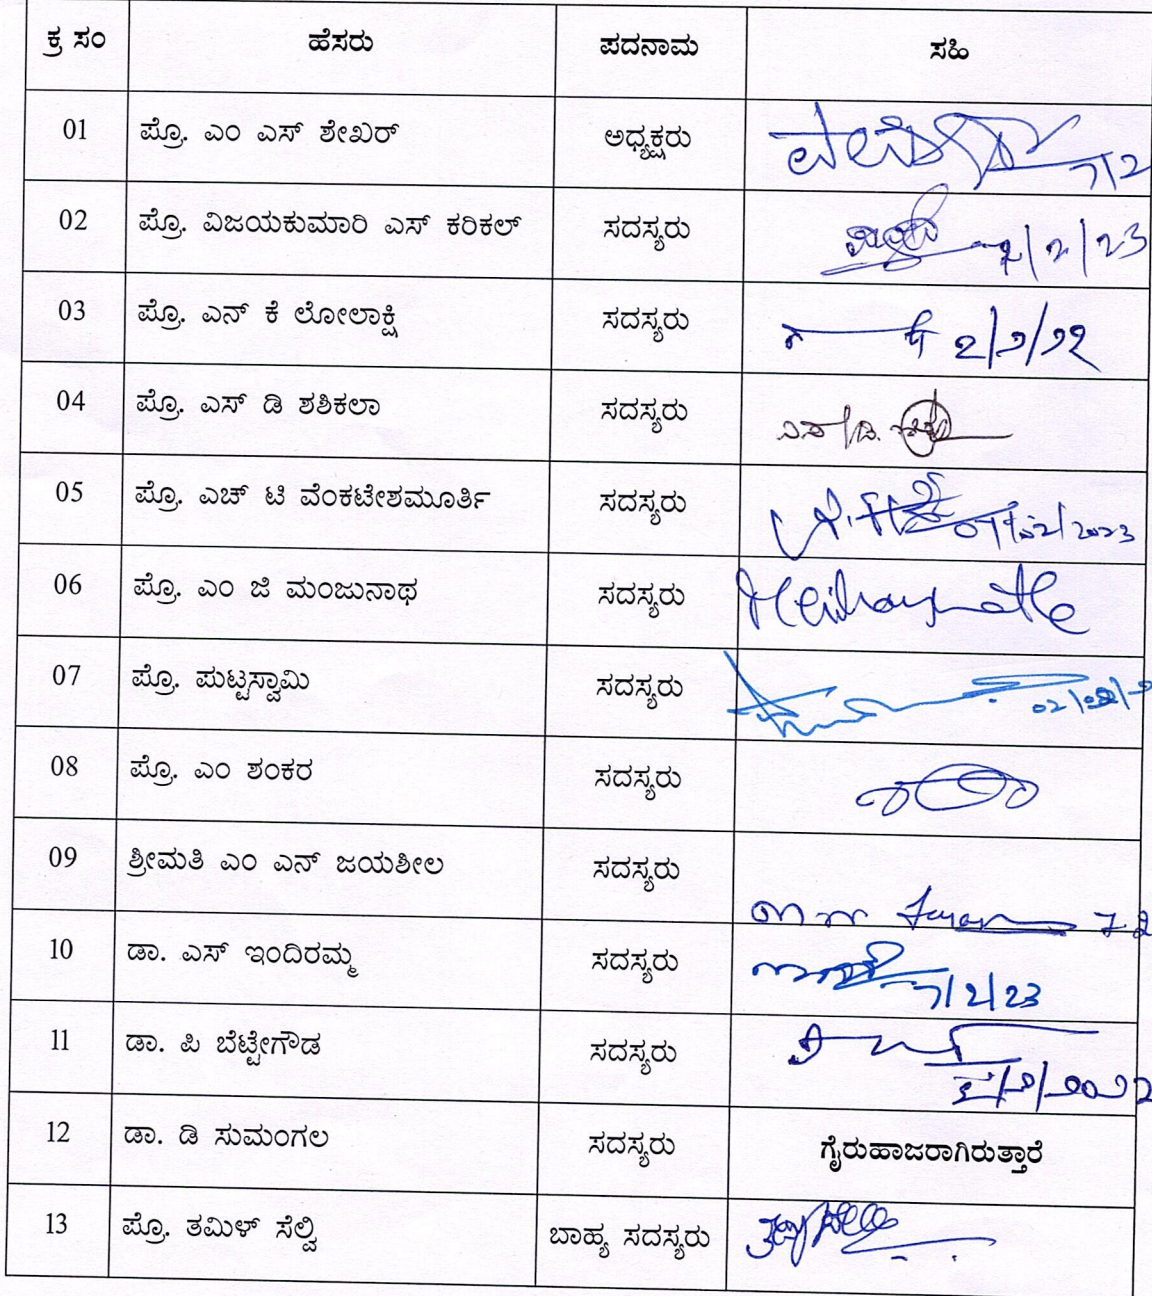 ಕ್ರ ಸಂ ಹೆಸರು ಪದನಾಮ ಸಹಿ
01 ಪ್ರೊ. ಎಂ ಎಸ್ ಶೇಖರ್ ಅಧ್ಯಕ್ಷರು
02 ಪ್ರೊ. ವಿಜಯಕುಮಾರಿ ಎಸ್ ಕರಿಕಲ್ ಸದಸ್ಯರು 7/2/23
03 ಪ್ರೊ. ಎನ್ ಕೆ ಲೋಲಾಕ್ಷಿ ಸದಸ್ಯರು
04 ಪ್ರೊ. ಎಸ್ ಡಿ ಶಶಿಕಲಾ ಸದಸ್ಯರು
05 ಪ್ರೊ. ಎಚ್ ಟಿ ವೆಂಕಟೇಶಮೂರ್ತಿ ಸದಸ್ಯರು 07/02/2023
06 ಪ್ರೊ. ಎಂ ಜಿ ಮಂಜುನಾಥ ಸದಸ್ಯರು
07 ಪ್ರೊ. ಪುಟ್ಟಸ್ವಾಮಿ ಸದಸ್ಯರು
08 ಪ್ರೊ. ಎಂ ಶಂಕರ ಸದಸ್ಯರು
09 ಶ್ರೀಮತಿ ಎಂ ಎನ್ ಜಯಶೀಲ ಸದಸ್ಯರು
10 ಡಾ. ಎಸ್ ಇಂದಿರಮ್ಮ ಸದಸ್ಯರು 7/2/23
11 ಡಾ. ಪಿ ಬೆಟ್ಟೇಗೌಡ ಸದಸ್ಯರು
12 ಡಾ. ಡಿ ಸುಮಂಗಲ ಸದಸ್ಯರು ಗೈರುಹಾಜರಾಗಿರುತ್ತಾರೆ
13 ಪ್ರೊ. ತಮಿಳ್ ಸೆಲ್ವಿ ಬಾಹ್ಯ ಸದಸ್ಯರು